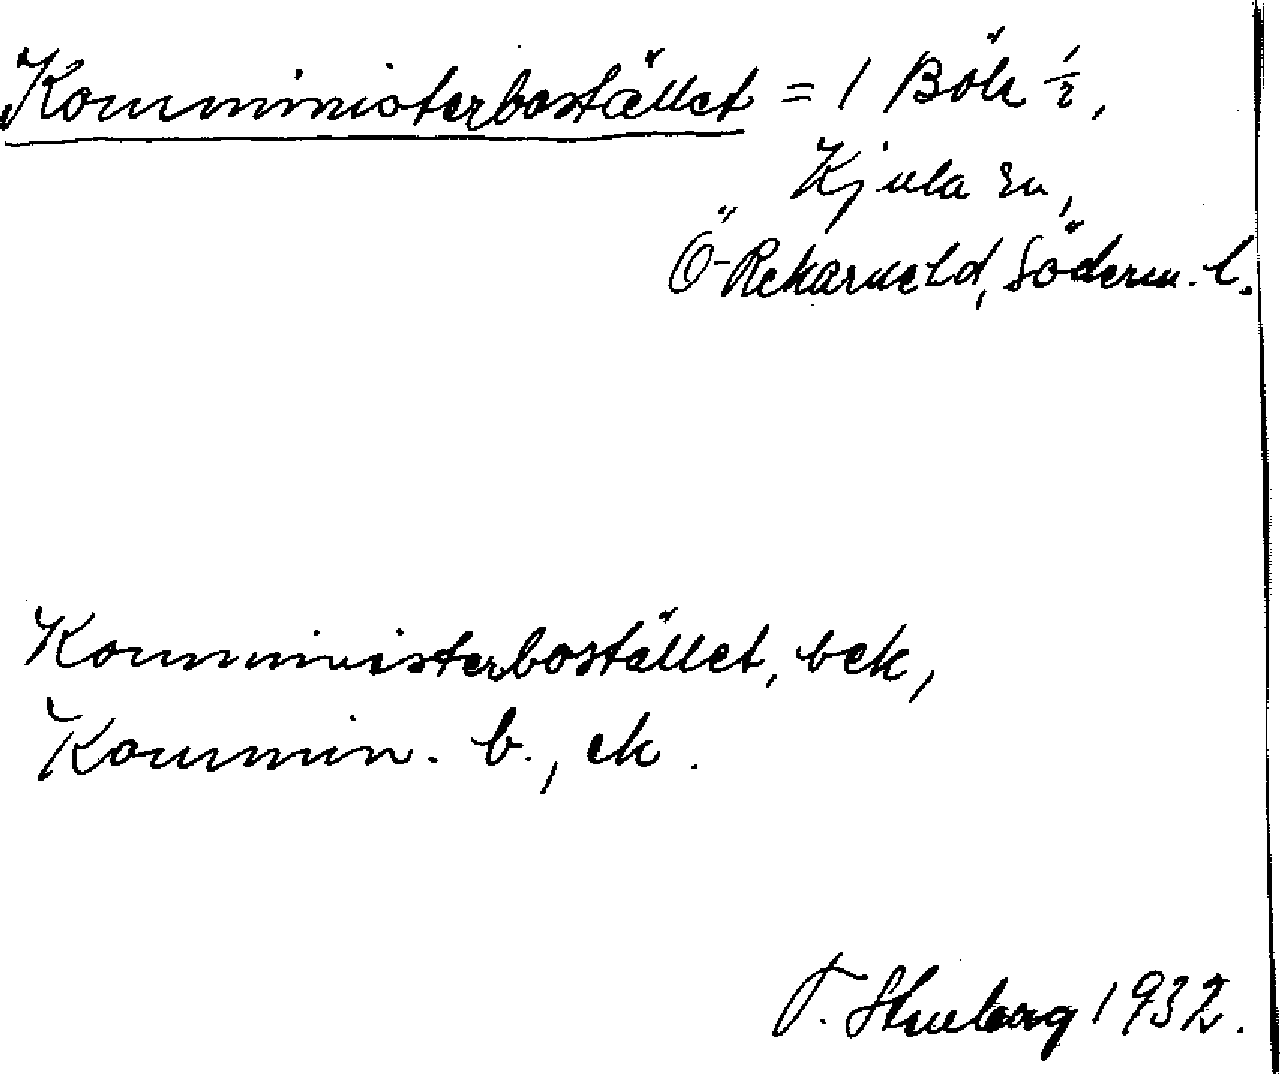 Komministerbostället = 1 Böle ½,
Kjula sn,
Ö-Rekarne hd, Söderm. l.
Komministerbostället, bek,
Kommin. b., ek.
1932.